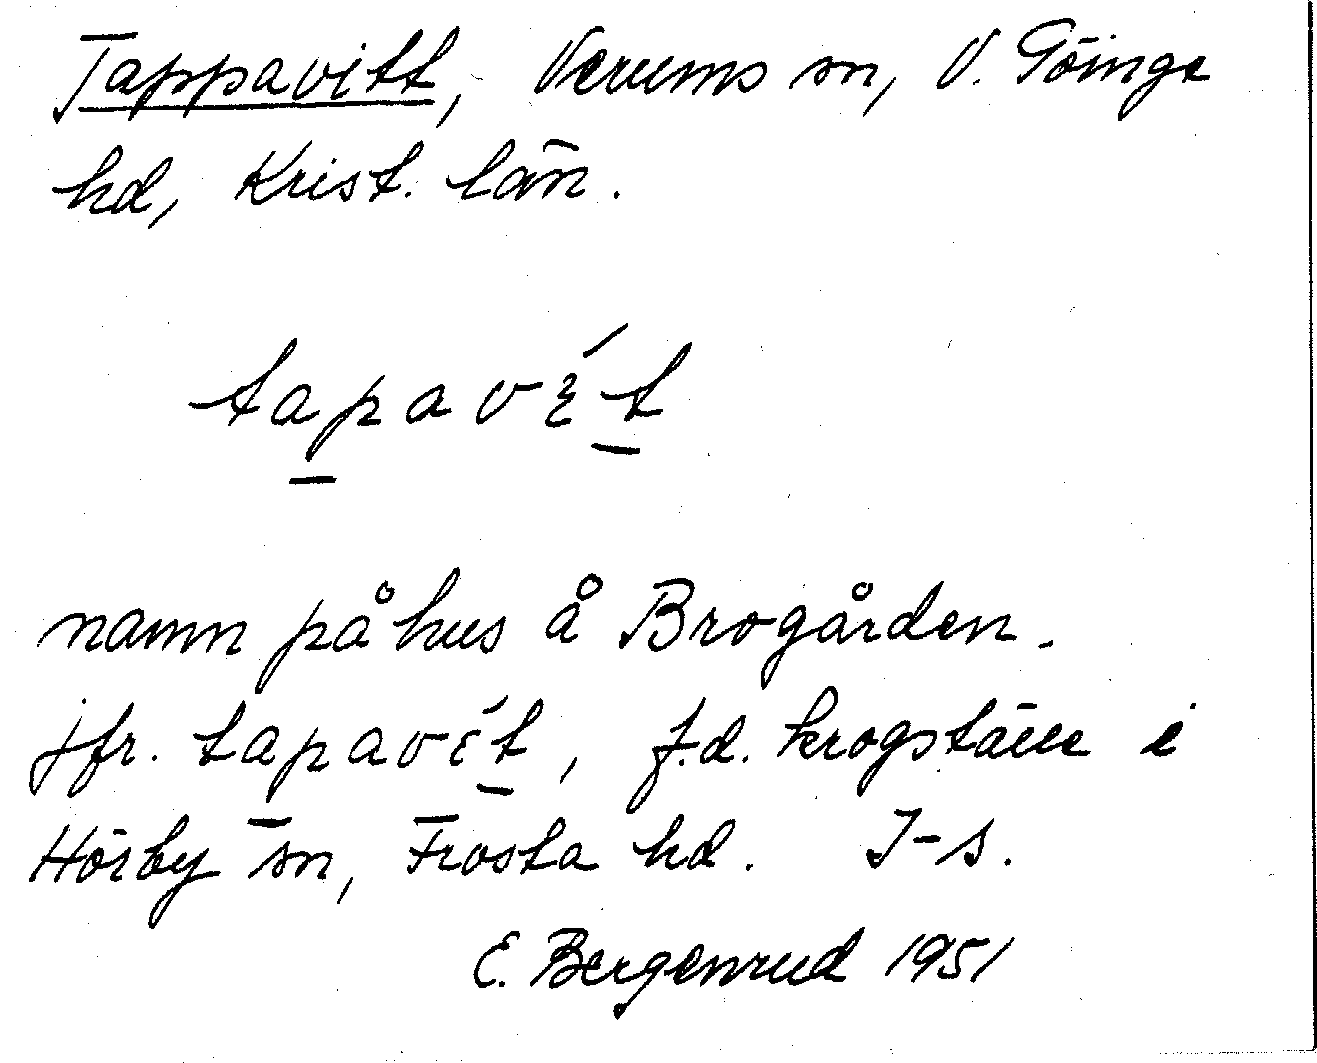 Tappavitt, Verums sn, V. Göinge
hd, Krist. län.
tap̲avɛ́t̲
namn på hus å Brogården.
jfr. tap̲avɛ́t̲, f.d. krogställe i
Hörby sn, Frosta hd. I-s.
E. Bergenrud 1951